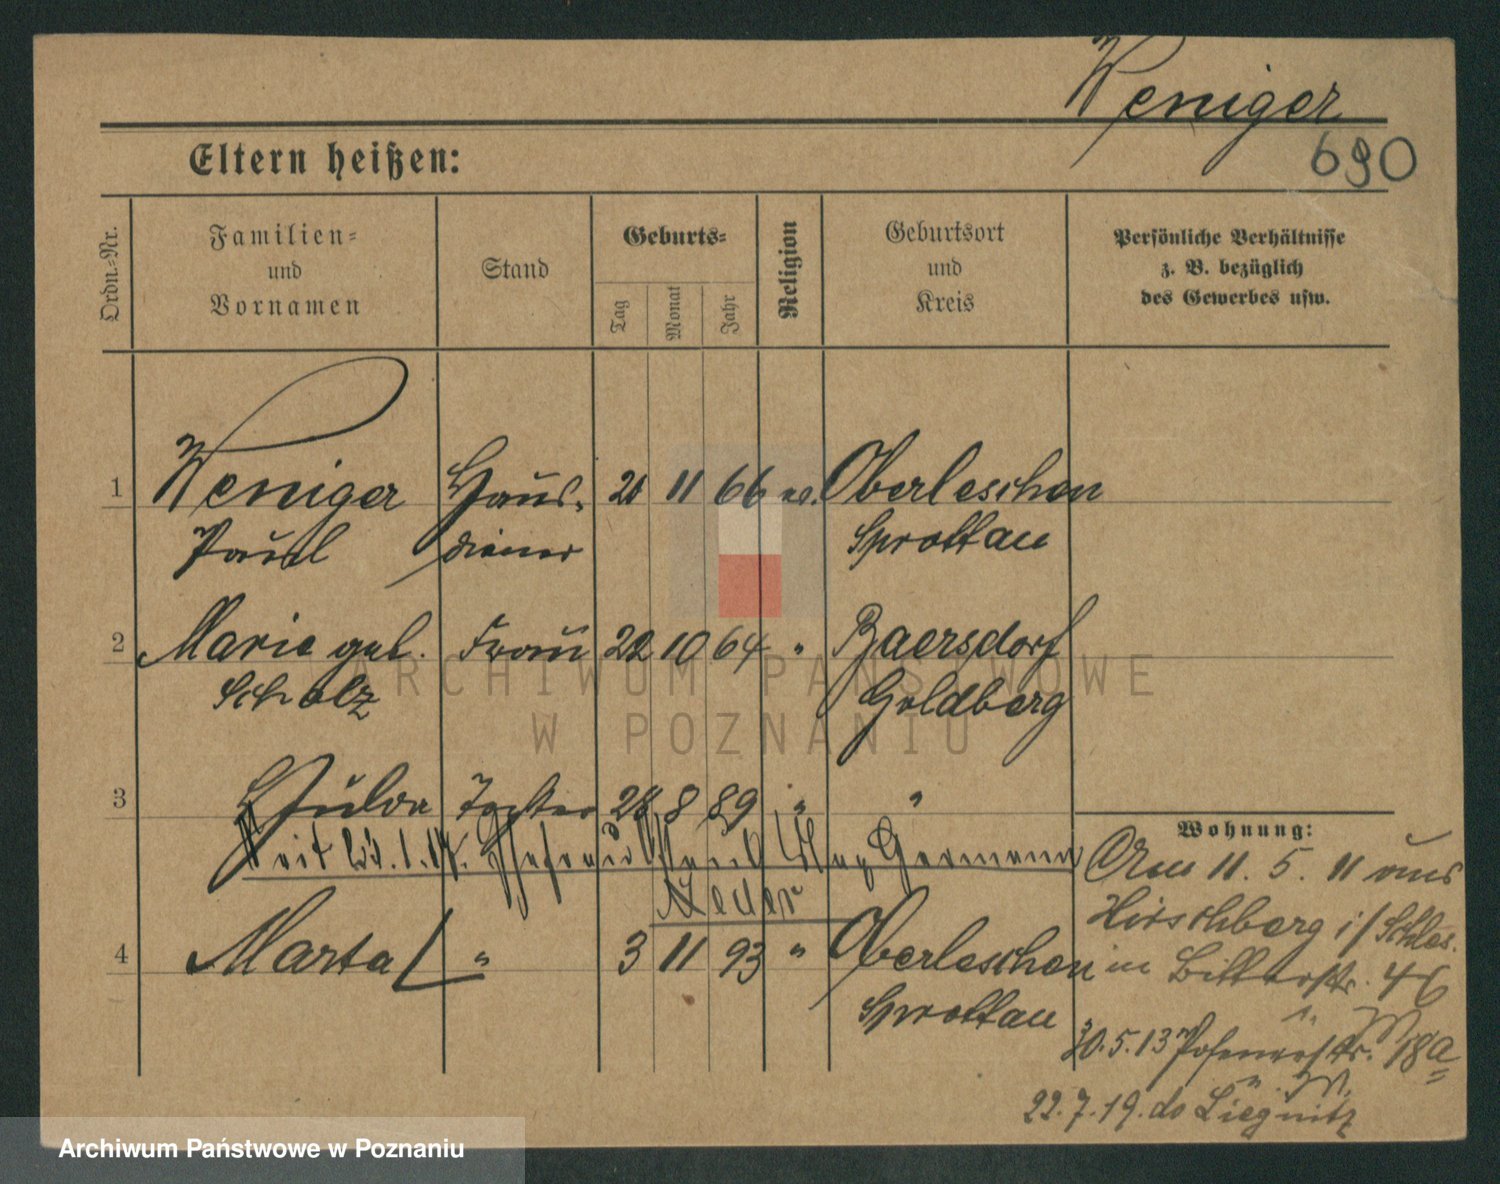 Weniger
690
Eltern heißen:
Ordn.-Nr.
Familien-
und
Vornamen
Stand
Geburts-
Tag
Monat
Jahr
Religion
Geburtsort
und
Kreis
Persönliche Verhältnisse
z. B. bezüglich
des Gewerbes usw.
1 Weniger Haus- 21 11 66 ev. Oberleschen
Paul diener Sprottau
2 Marie geb. Frau 22 10 64 " Baersdorf
Scholz Goldberg
3 Hulda Tochter 28 8 89 " "
Seit Ehefrau Germann
4 Marta " 3 11 93 " Oberleschen
Sprottau
Wohnung:
Am 11. 5. 11 aus
Hirschberg i/Schles.
in Bitterstr. 46
30.5.13 Posenerstr. 18a
22.7.19. do Liegnitz
ARCHIWUM PAŃSTWOWE
W POZNANIU
Archiwum Państwowe w Poznaniu